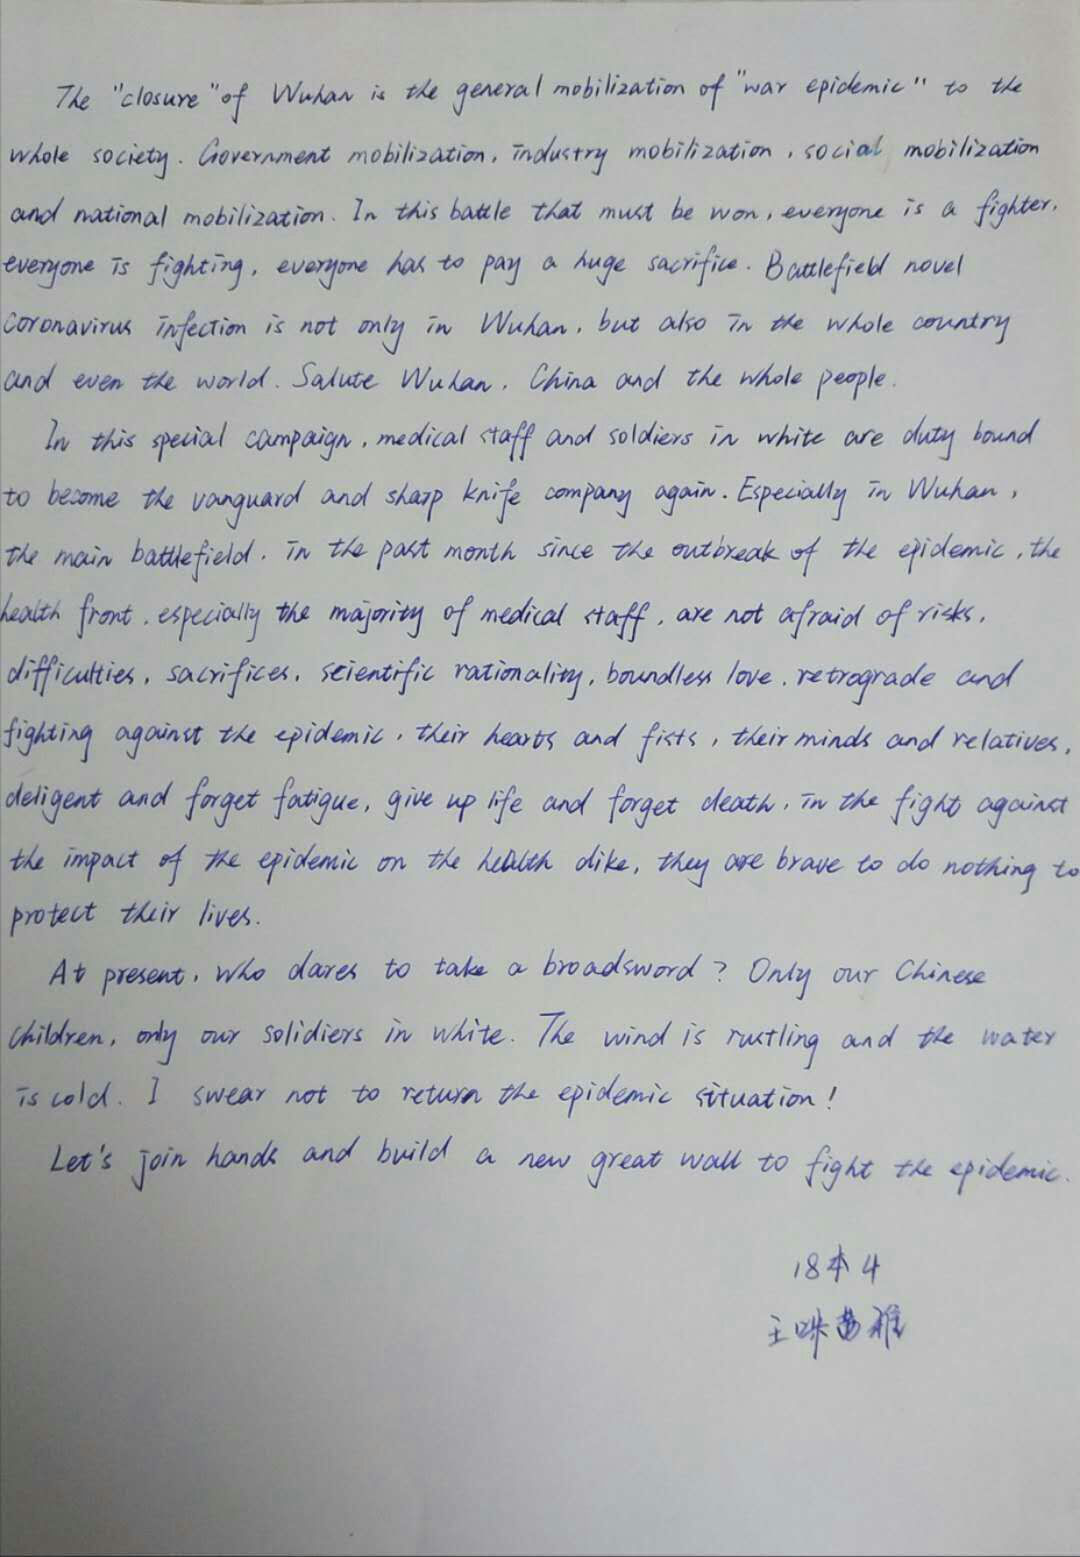 The "closure" of Wuhan is the general mobilization of "war epidemic" to the
whole society. Government mobilization, industry mobilization, social mobilization
and national mobilization. In this battle that must be won, everyone is a fighter,
everyone is fighting, everyone has to pay a huge sacrifice. Battlefield novel
coronavirus infection is not only in Wuhan, but also in the whole country
and even the world. Salute Wuhan, China and the whole people.
In this special campaign, medical staff and soldiers in white are duty bound
to become the vanguard and sharp knife company again. Especially in Wuhan,
the main battlefield, in the past month since the outbreak of the epidemic, the
health front, especially the majority of medical staff, are not afraid of risks,
difficulties, sacrifices, scientific rationality, boundless love, retrograde and
fighting against the epidemic, their hearts and fists, their minds and relatives,
deligent and forget fatigue, give up life and forget death, in the fight against
the impact of the epidemic on the health dike, they are brave to do nothing to
protect their lives.
At present, who dares to take a broadsword? Only our Chinese
children, only our solidiers in white. The wind is rustling and the water
is cold. I swear not to return the epidemic situation!
Let's join hands and build a new great wall to fight the epidemic.
18本4
王 雅